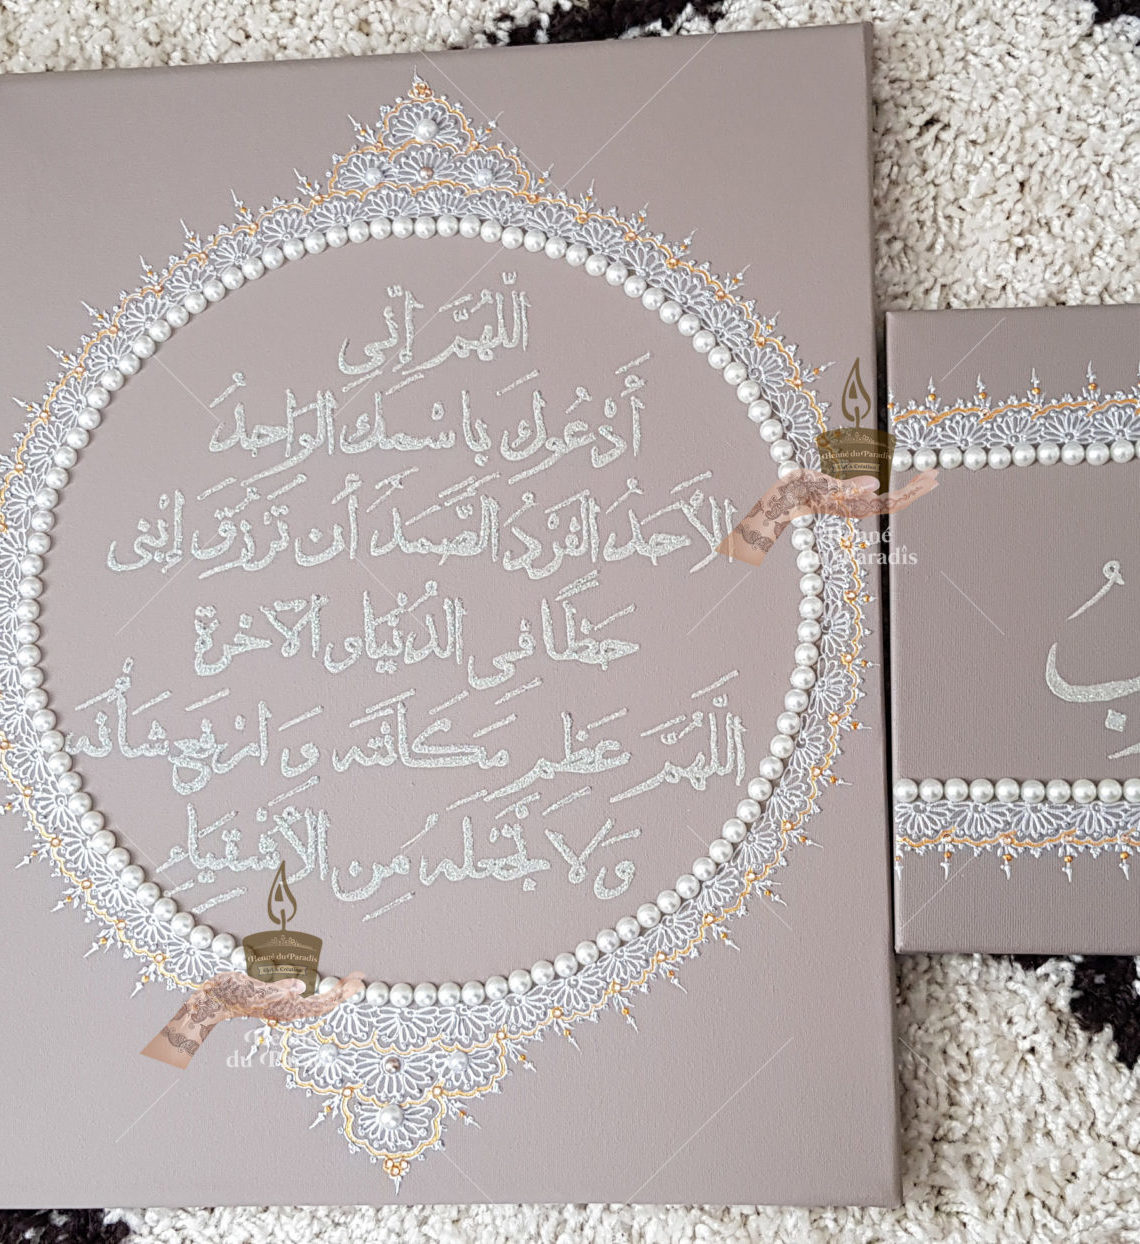 اللّهُمَّ إنّي
أَدْعُوكَ بِاسْمِكَ الوَاحِدُ
الأَحَدُ الفَرْدُ الصَّمَدَ أَن تَرْزُقَ إِبْنِي
حَظًا فِي الدُنْيَا وَ الآخِرَة
اللَّهُمَّ عَظِم مَكَانَتَه وَ ارْفَع شَأْنَه
وَلَا تَجْعَلهُ مِن الأَشْقِيَاءِ
Henné du Paradis
Art & Création
Henné
du Paradis
Henné du Paradis
Art & Création
Henné
du Paradis